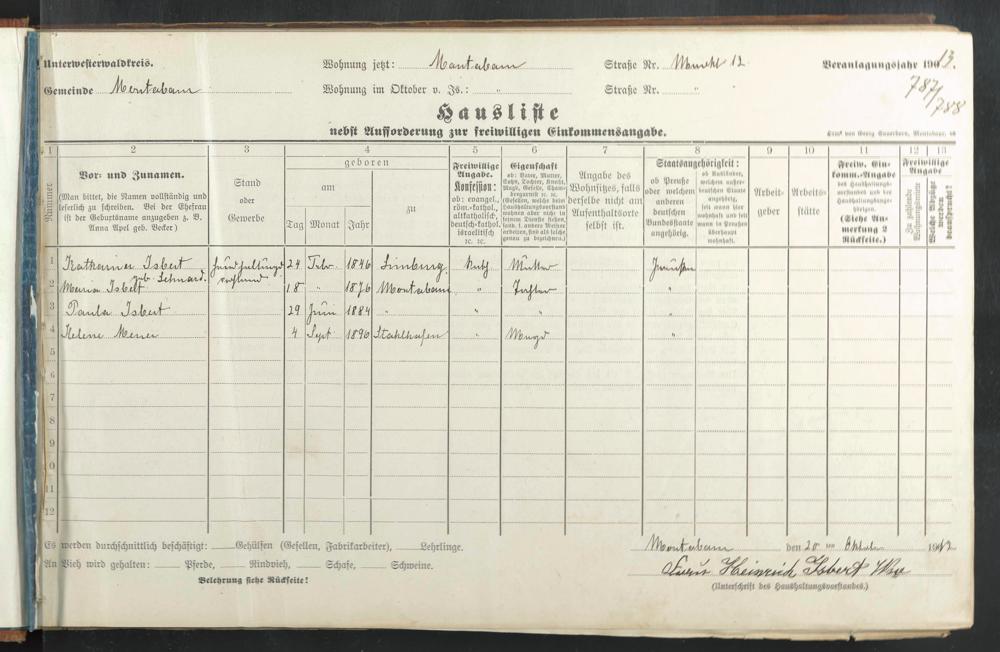 Unterwesterwaldkreis.
Wohnung jetzt: Montabaur
Straße Nr. Markt 12
Veranlagungsjahr 1913.
Gemeinde Montabaur
Wohnung im Oktober v. Js.: "
Straße Nr. "
787/788
Hausliste
nebst Aufforderung zur freiwilligen Einkommensangabe.
Druck von Georg Sauerborn, Montabaur.
1 2 3 4 5 6 7 8 9 10 11 12 13
Nummer
Vor- und Zunamen.
(Man bittet, die Namen vollständig und
leserlich zu schreiben. Bei der Ehefrau
ist der Geburtsname anzugeben z. B.
Anna Apel geb. Becker)
Stand
oder
Gewerbe
geboren
am
Tag Monat Jahr
zu
Freiwillige
Angabe.
Konfession:
ob: evangel.,
röm.-kathol.,
altkatholisch,
deutsch-kathol.
israelitisch
ec. ec.
Eigenschaft
ob: Vater, Mutter,
Sohn, Tochter, Knecht,
Magd, Geselle, Cham-
bregarnist ec. ec.
(Gesellen, welche beim
Haushaltungsvorstand
wohnen aber nicht in
seinem Dienste stehen,
bzw. f. andere Meister
arbeiten, sind als solche
genau zu bezeichnen.)
Angabe des
Wohnsitzes, falls
derselbe nicht am
Aufenthaltsorte
selbst ist.
Staatsangehörigkeit:
ob Preuße
oder welchem
anderen
deutschen
Bundesstaate
angehörig.
ob Ausländer,
welchem außer-
deutschen Staate
angehörig,
seit wann hier
wohnhaft und seit
wann in Preußen
überhaupt
wohnhaft.
Arbeit-
geber
Arbeits-
stätte
Freiw. Ein-
komm.-Angabe
des Haushaltungs-
vorstandes und der
Haushaltungsange-
hörigen.
(Siehe An-
merkung 2
Rückseite.)
Freiwillige
Angabe
Zu zahlende
Wohnungsmiete
Welche Abzüge
werden
beansprucht?
1 Katharina Isbert Haushaltungs- 24 Febr. 1846 Limburg Kath. Mutter Preußen
geb. Lehnard. vorstand
2 Maria Isbert 18 " 1876 Montabaur " Tochter "
3 Paula Isbert 29 Juni 1884 " " " "
4 Helene Mener 4 Sept 1896 Stahlhofen " Magd "
5
6
7
8
9
10
11
12
Es werden durchschnittlich beschäftigt: Gehülfen (Gesellen, Fabrikarbeiter), Lehrlinge.
An Vieh wird gehalten: Pferde, Rindvieh, Schafe, Schweine.
Belehrung siehe Rückseite!
Montabaur den 20 ten Oktober 1912
Frau Heinrich Isbert Wwe
(Unterschrift des Haushaltungsvorstandes.)